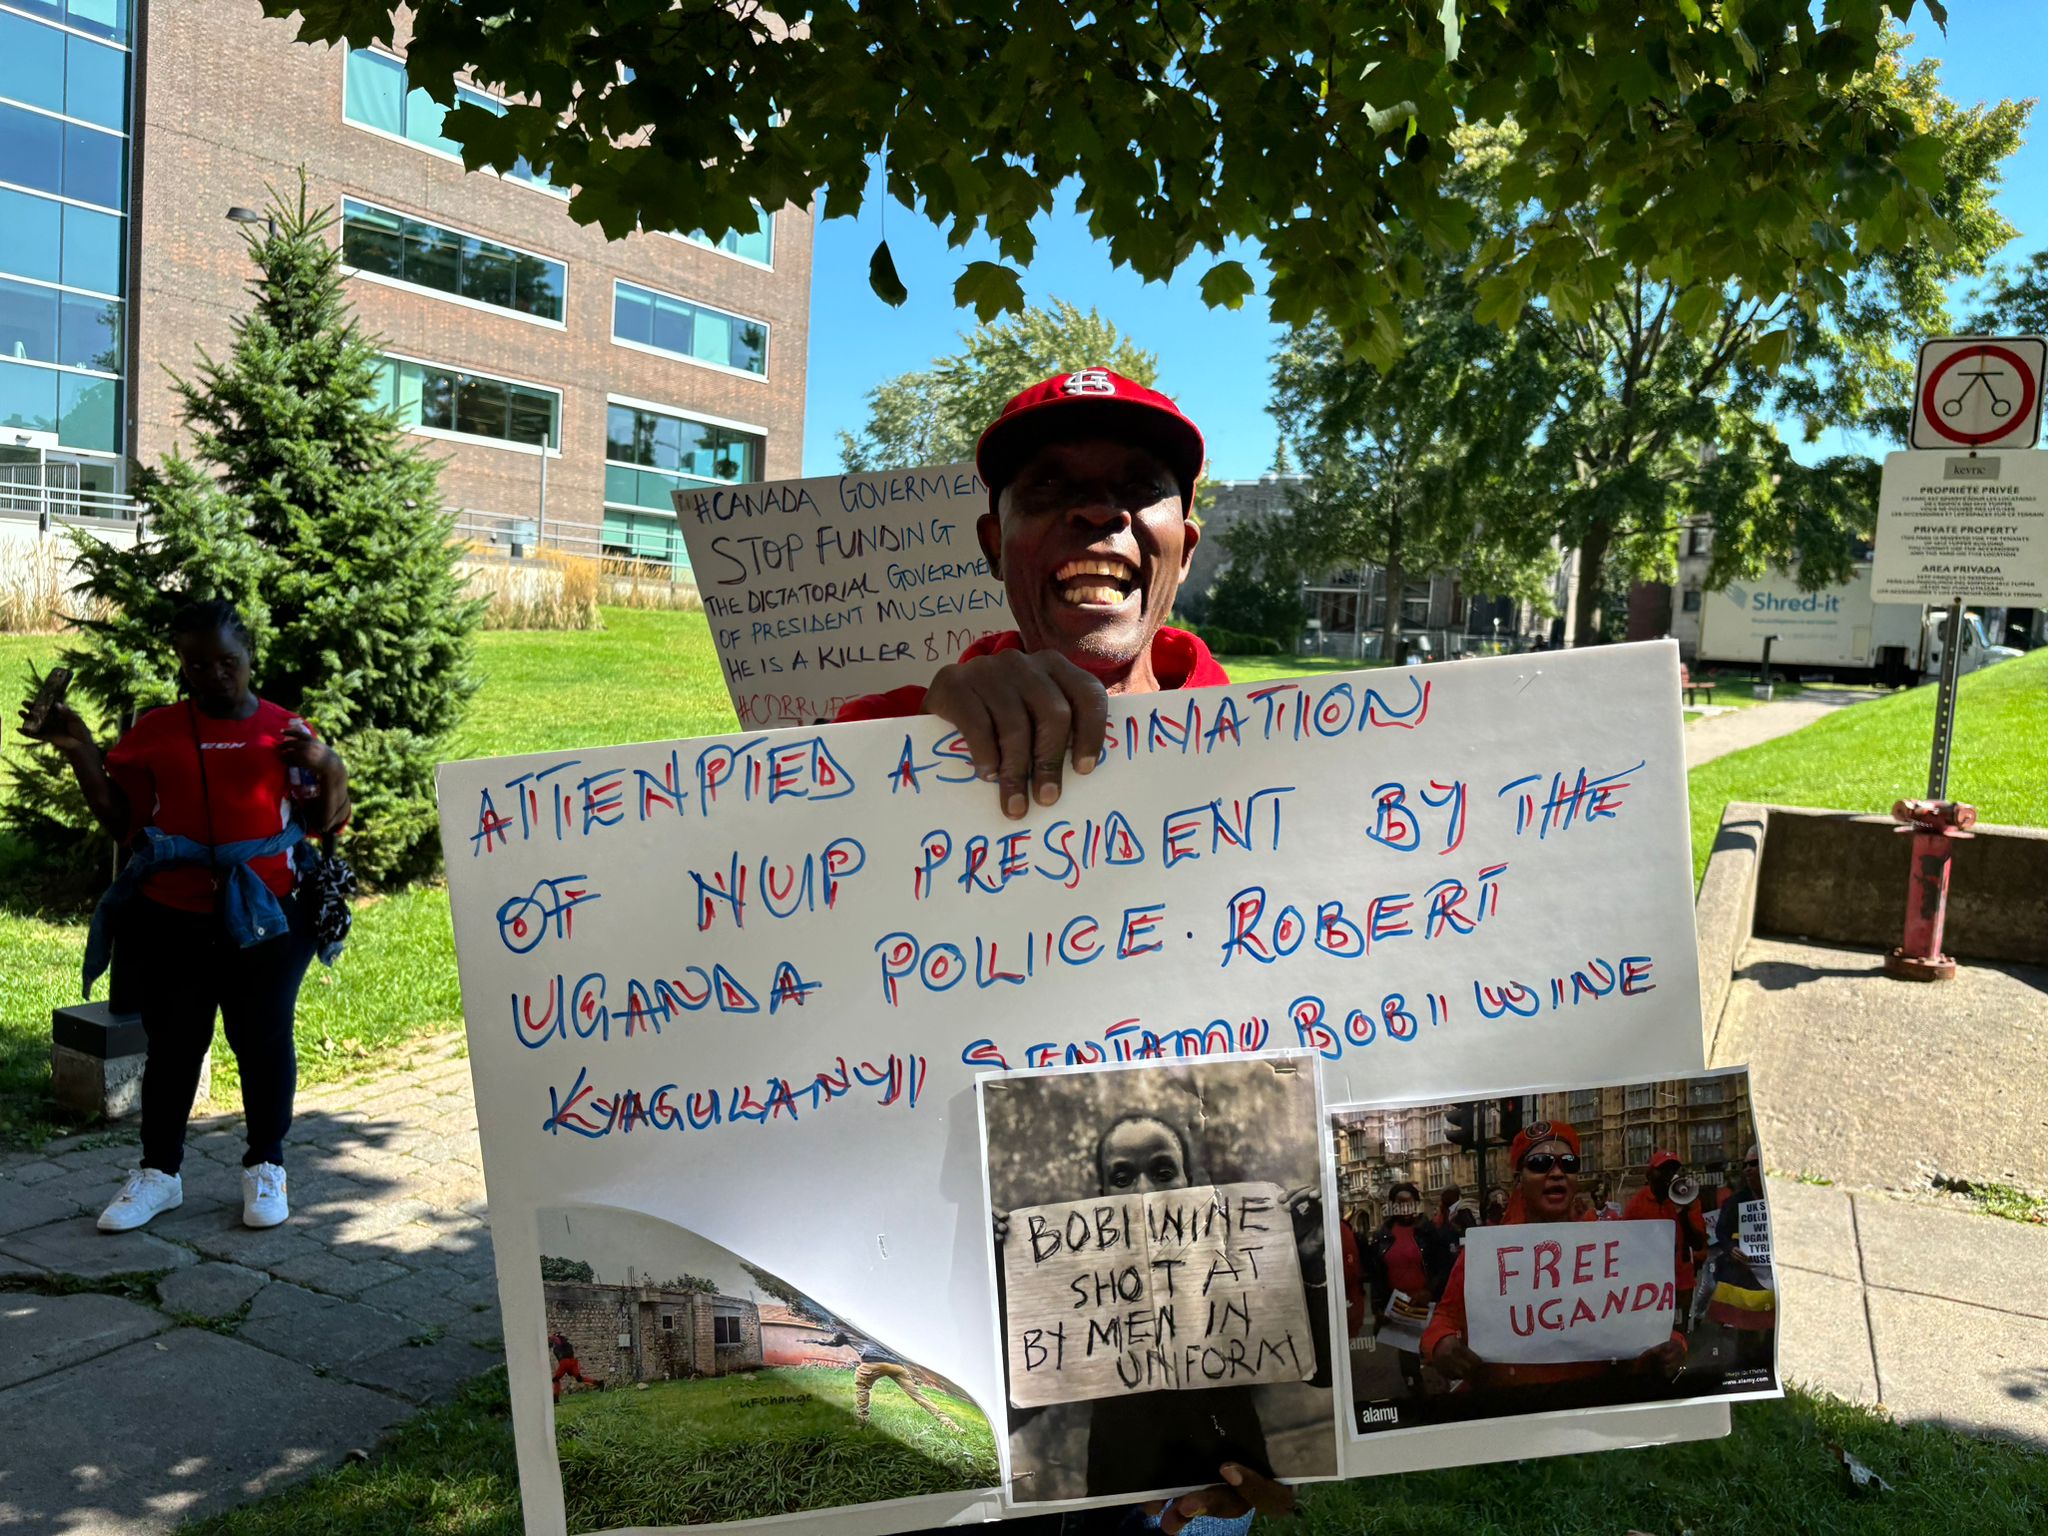 #CANADA GOVERMEN
STOP FUNDING
THE DICTATORIAL GOVERME
OF PRESIDENT MUSEVEN
HE IS A KILLER & MUR
#CORRUPT
ATTENPTED ASSINATION
OF NUP PRESIDENT BY THE
UGANDA POLICE. ROBERT
KYAGULANYI SENTAMU BOBI WINE
BOBI WINE
SHOT AT
BY MEN IN
UNIFORM
FREE
UGANDA
UK S
COLLU
WI
UGAN
TYR
MUSE
alamy
alamy
alamy
www.alamy.com
UFChange
CCM
Shred-it
kevric
PROPRIÉTÉ PRIVÉE
PRIVATE PROPERTY
AREA PRIVADA